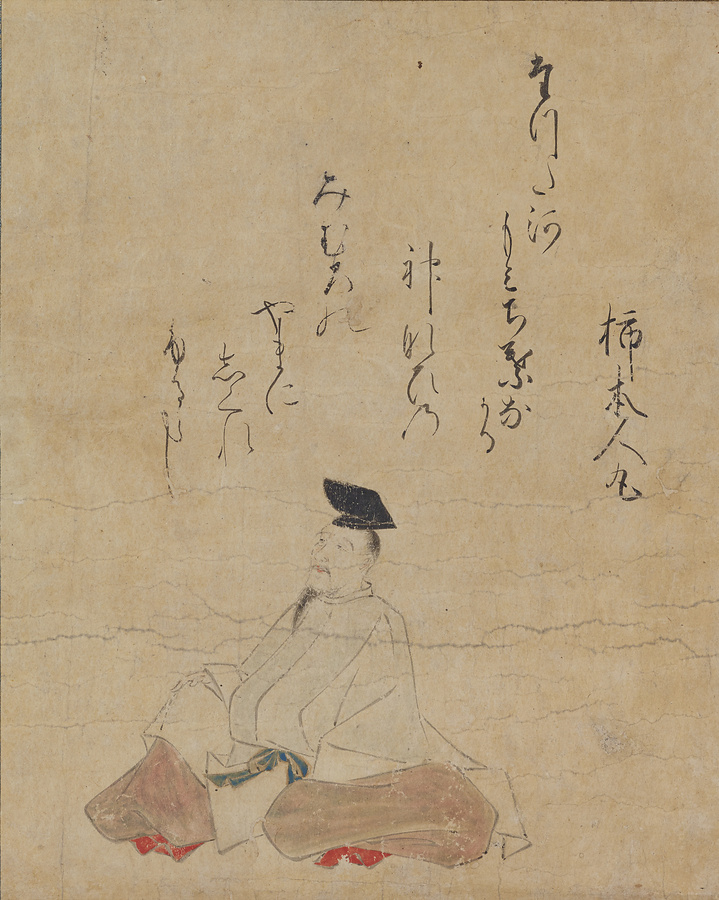 柿本人丸
たつた河
もみち葉な
かる
神なひの
みむろの
やまに
志くれ
ふるらし